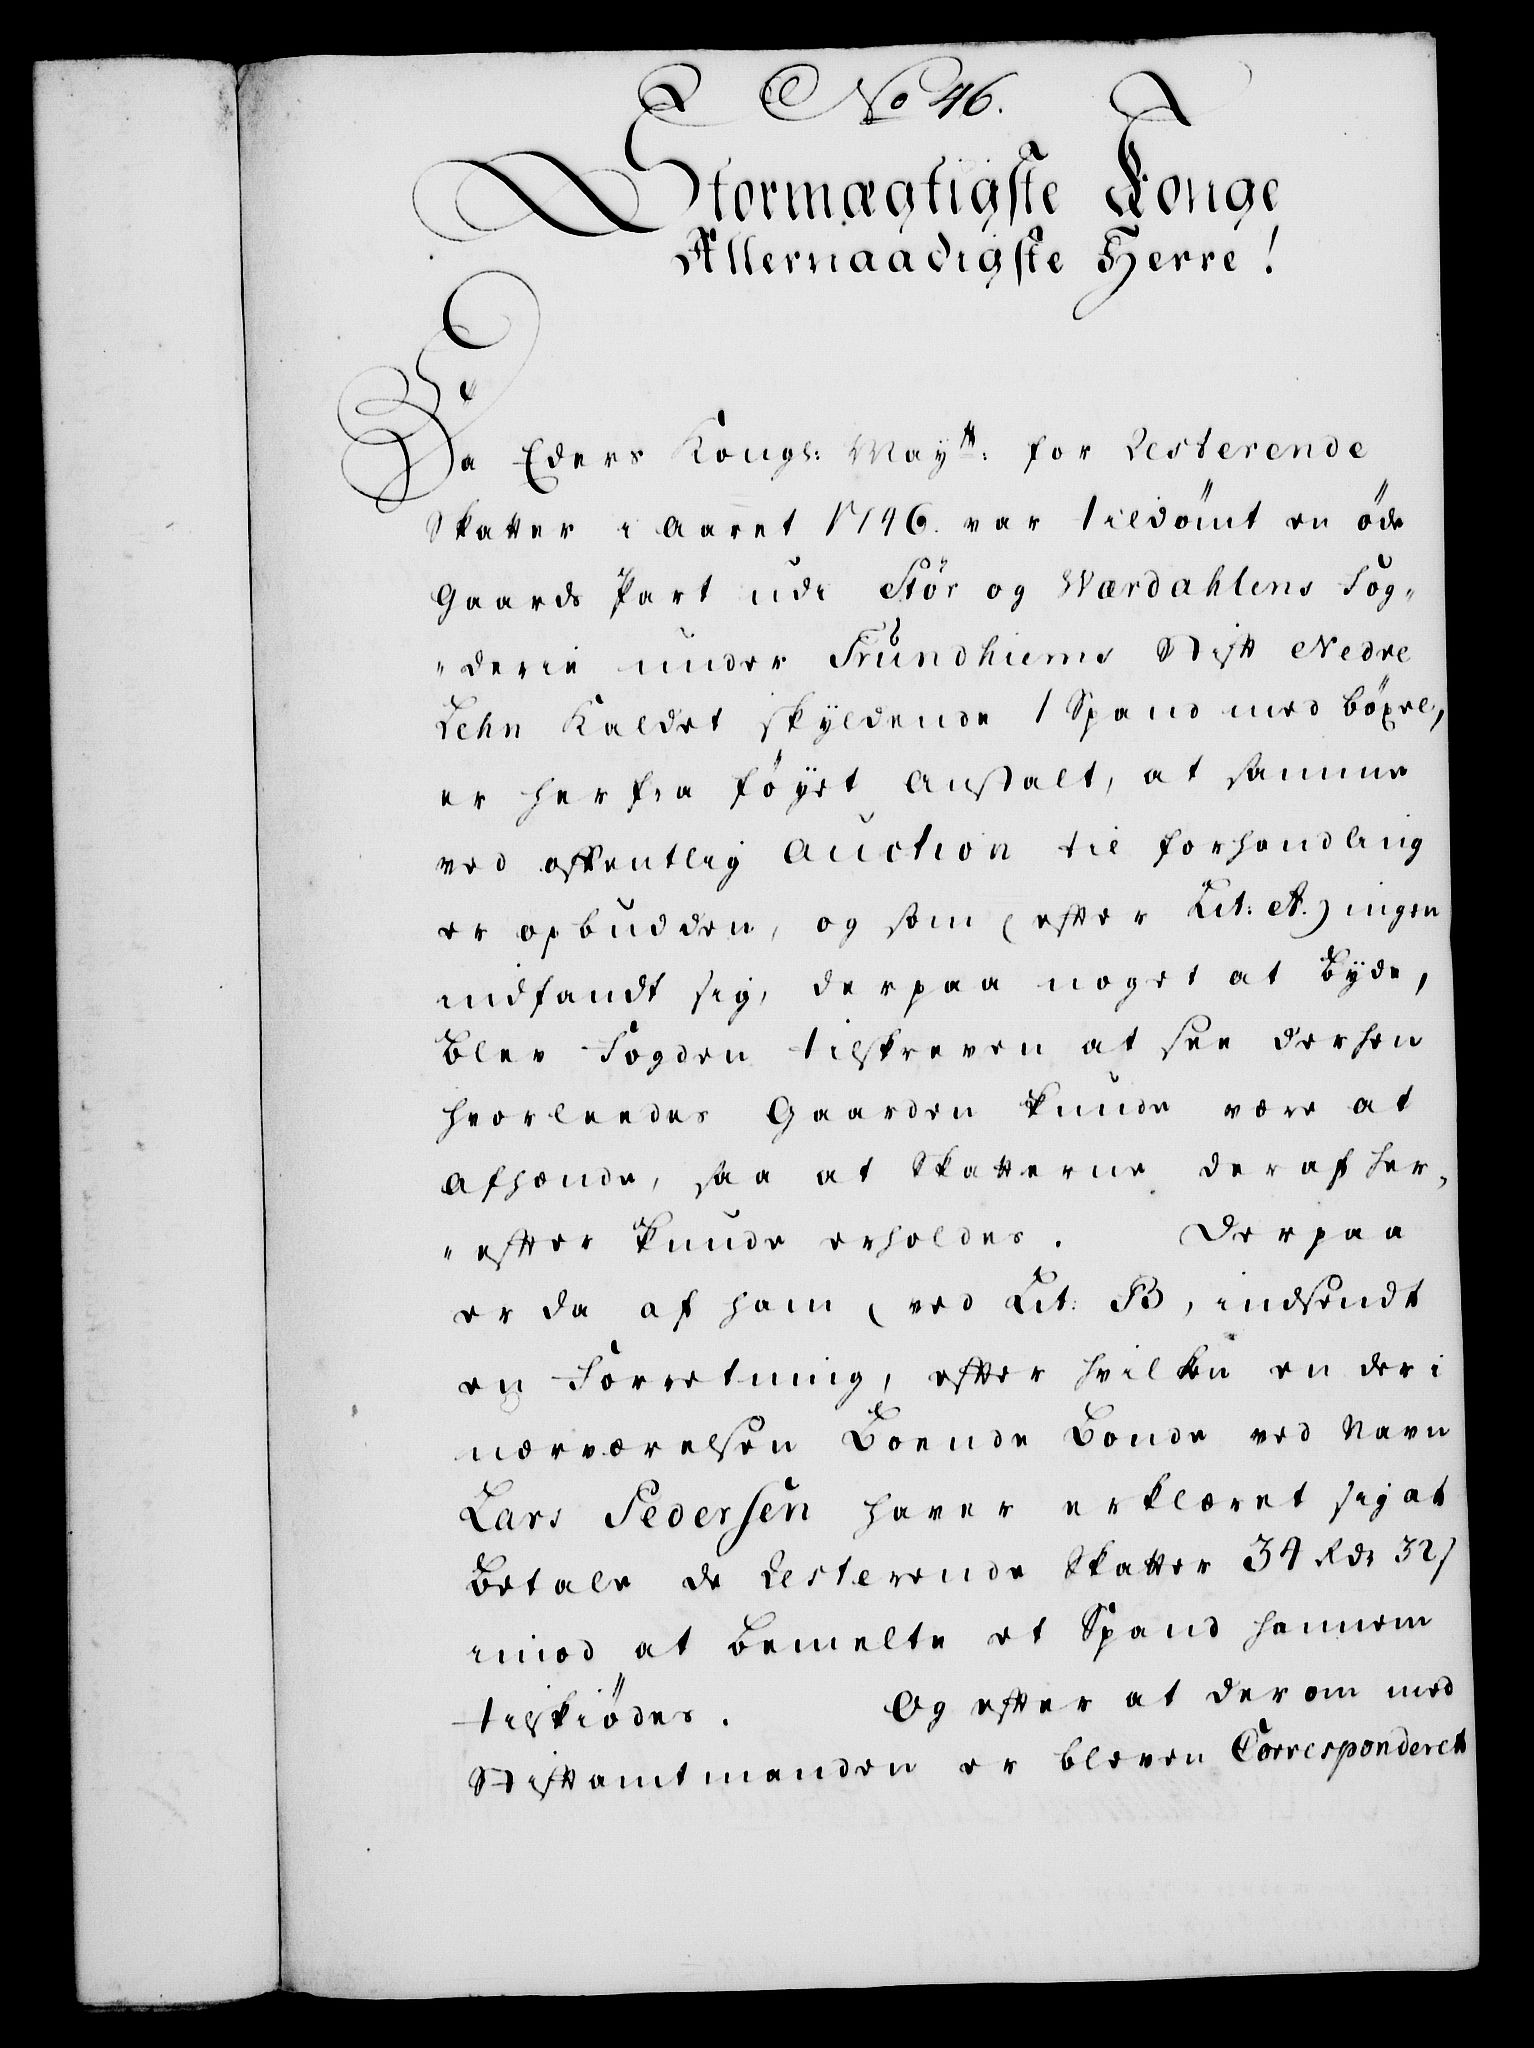 No 46.
Stormægtigste Konge
Allernaadigste Herre!
Da Eders Kongl: May^tt: for Resterende
Skatter i Aaret 1746. var tildömt en öde
Gaards Part udi Stör og Wærdahlens Fog„
„derie under Trundhiems Stift Nedre
Lehn Kaldet skÿldende 1 Spand med böxel,
er her fra föÿet Anstalt, at samme
ved offentlig Auction til forhandling
er opbudden, og som (efter Lit: A.) ingen
indfandt sig, derpaa noget at Bÿde,
Blev Fogden tilskreven at see derhen
hvorleedes Gaarden kunde være at
afhænde, saa at Skatterne deraf her„
„efter kunde erholdes. Derpaa
er da af ham (ved Lit: B, indsendt
en Forretning, efter hvilken en der i
nærværelsen Boende Bonde ved Navn
Lars Pedersen haver erklæret sig at
Betale de Resterende Skatter 34 Rdr 32 s
imod at bemelte et Spand hannem
tilskiödes. Og efter at derom med
Stiftamtmanden er bleven Corresponderet